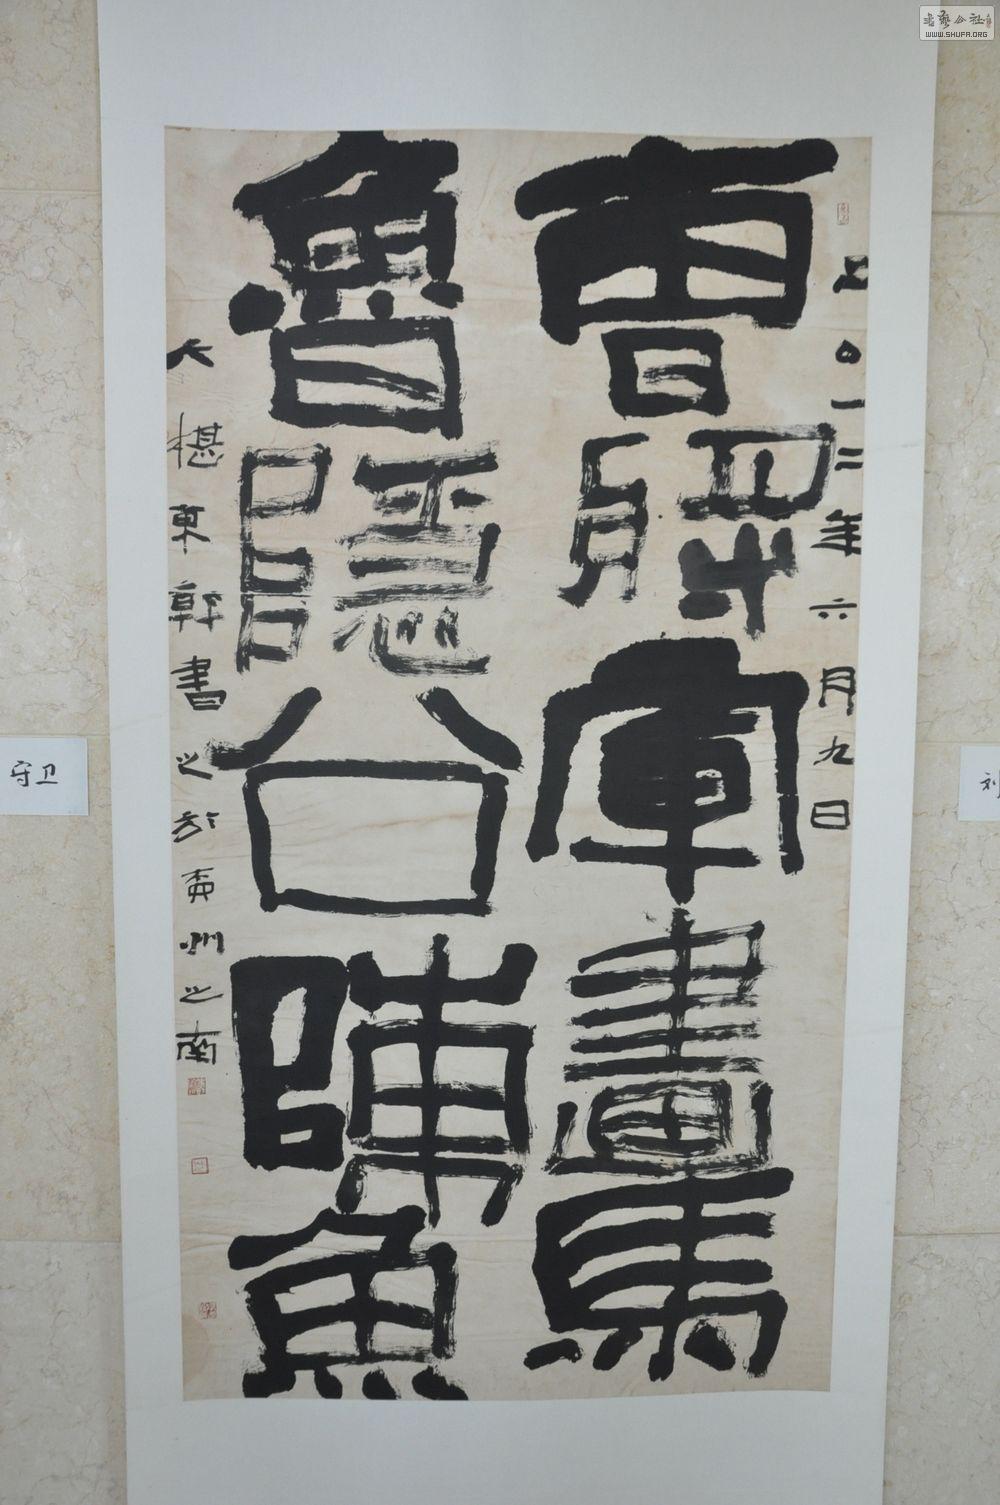 曹將軍畫馬
魯隱公晦魚
二〇一二年六月九日
大椹東幹書之於黃州之南
守卫
刘
书艺公社
WWW.SHUFA.ORG